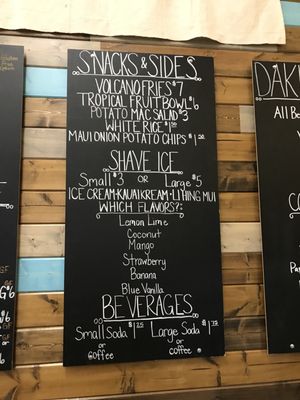 SNACKS & SIDES
VOLCANO FRIES $7
TROPICAL FRUIT BOWL $6
POTATO MAC SALAD $3
WHITE RICE $1.50
MAUI ONION POTATO CHIPS $1.50
SHAVE ICE
Small $3 OR Large $5
ICE CREAM • KAUAI KREAM • LI HING MUI
WHICH FLAVORS?:
Lemon Lime
Coconut
Mango
Strawberry
Banana
Blue Vanilla
BEVERAGES
Small Soda $1.25 Large Soda $1.75
or or
Coffee coffee
DAK
All Bo